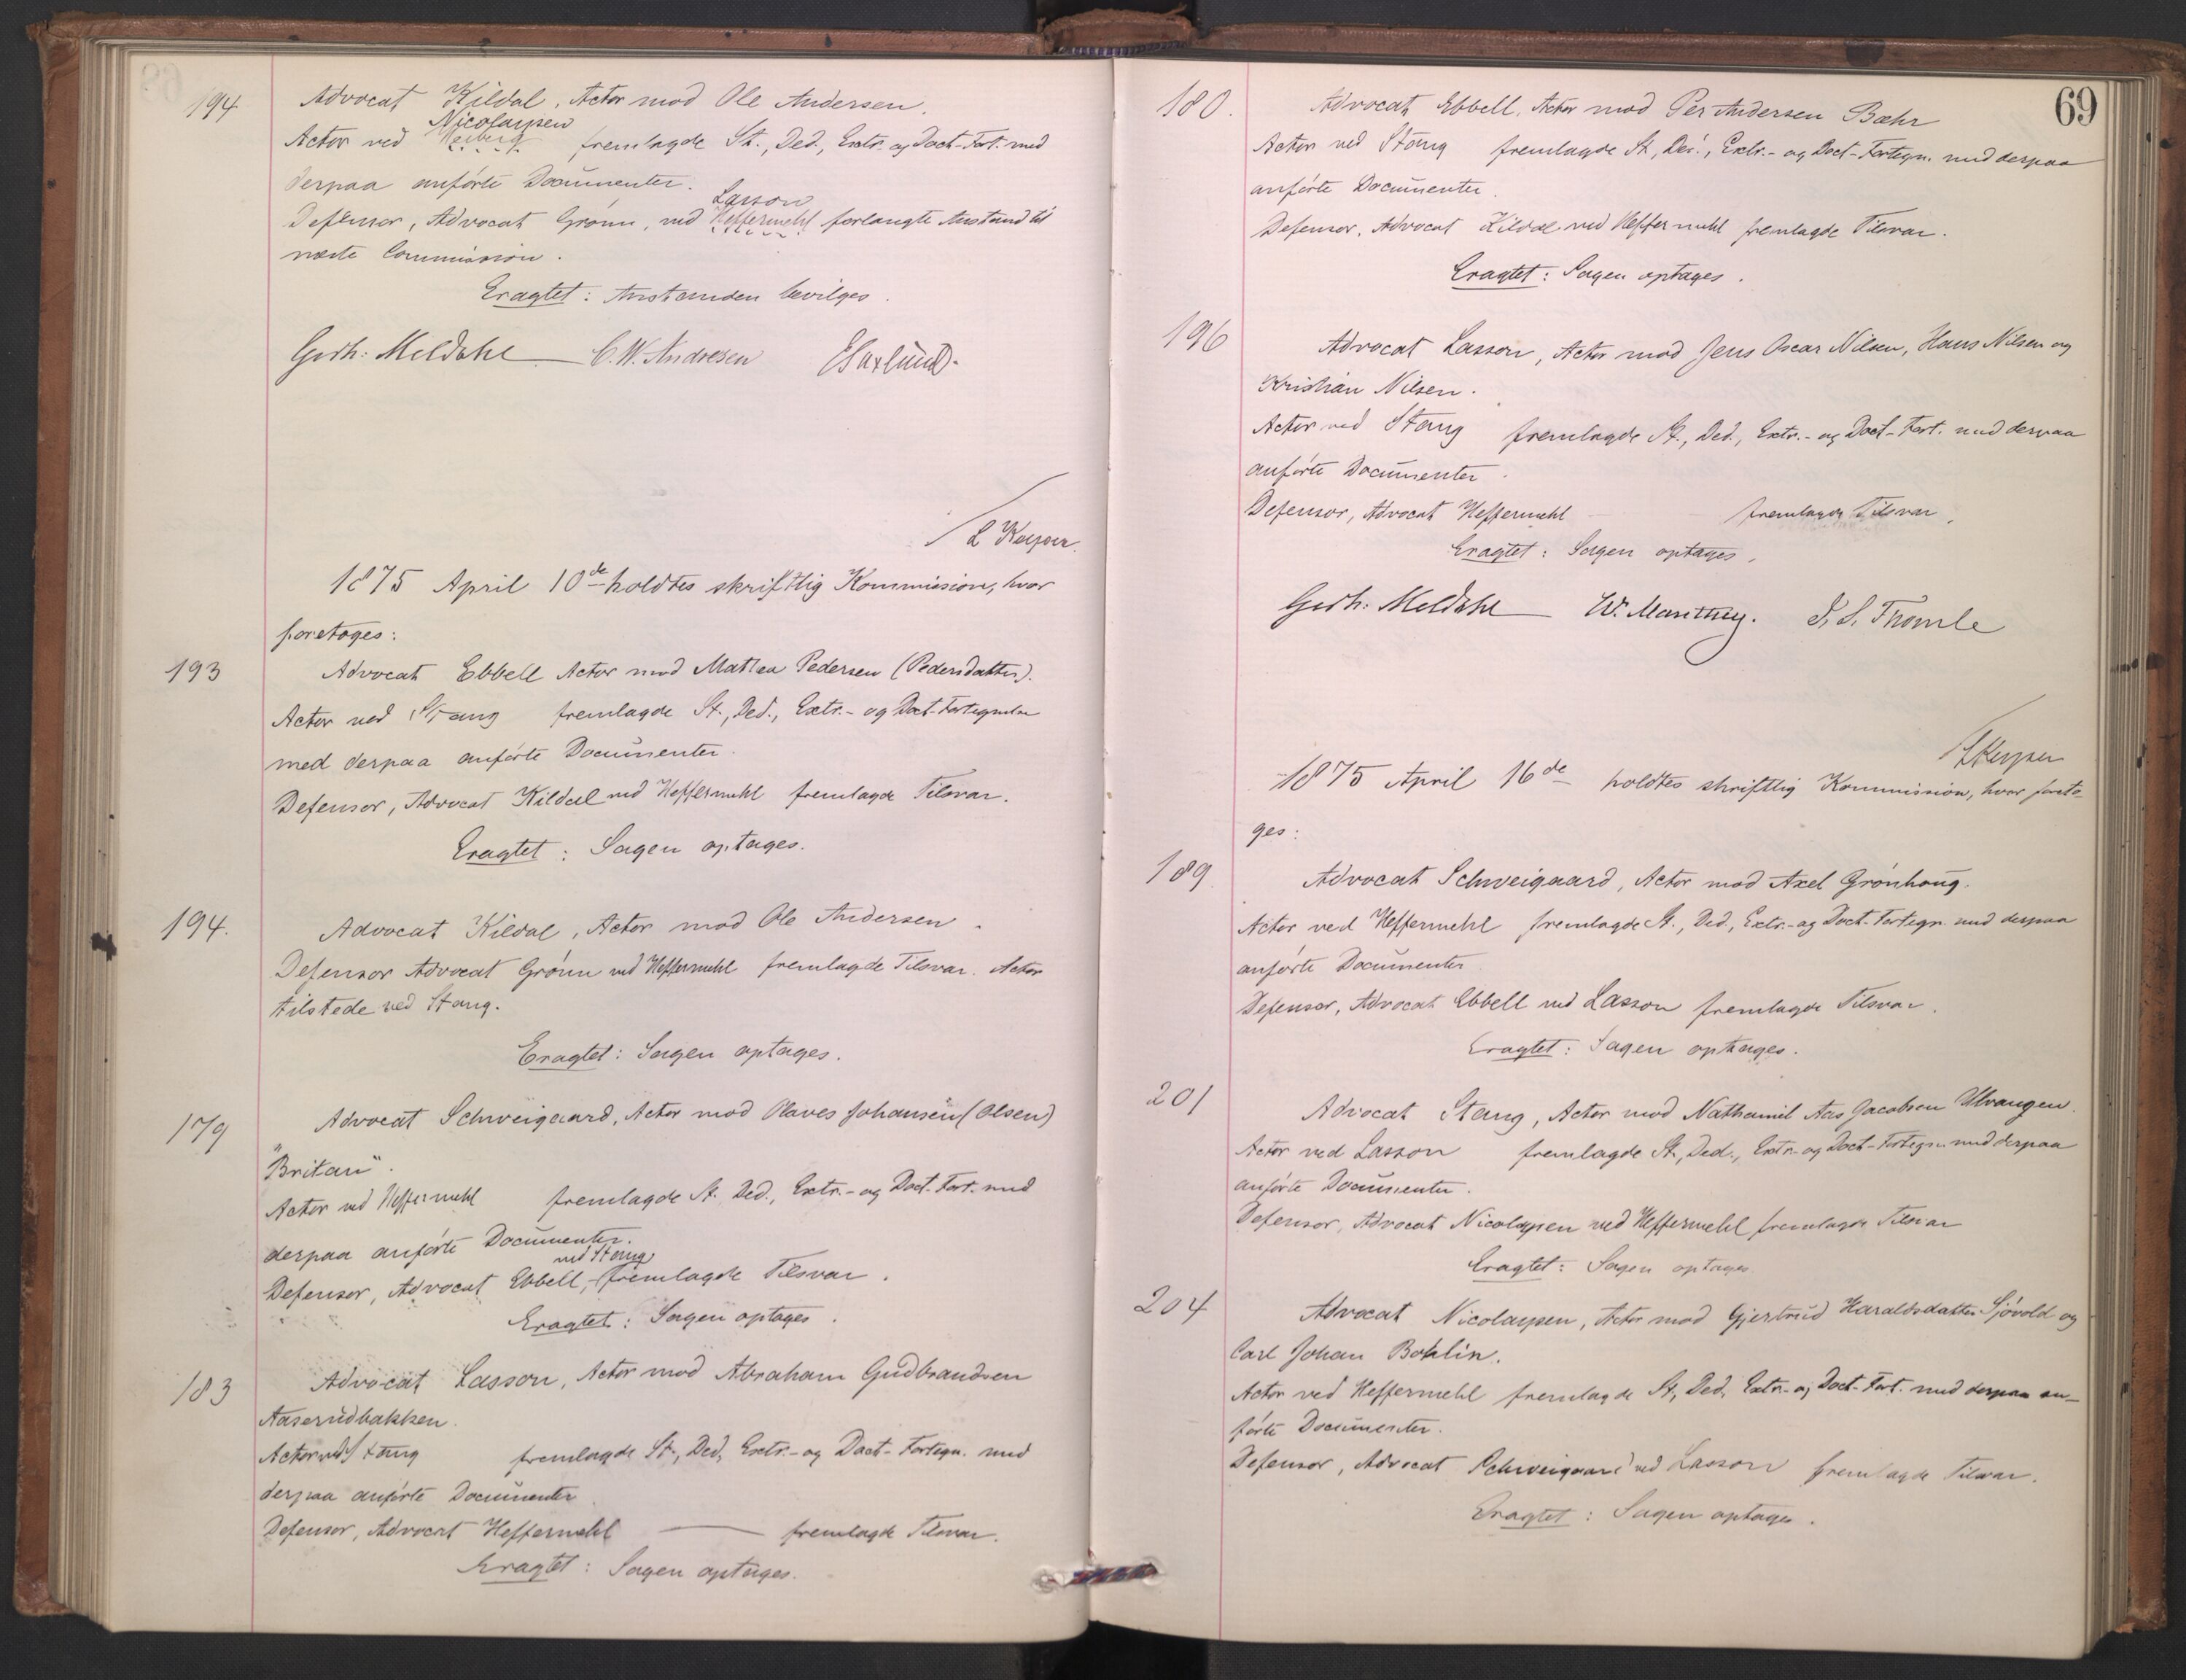 194 Advocat Kildal, Actor mod Ole Andersen.
Nicolaysen
Actor ved Meiberg fremlagde St., Ded., Extr.- og Doct-Fort. med
derpaa anførte Documenter.
Lasson
Deffensor, Advocat Grønn, ved Heffermehl forlangte Anstand til
næste Commission.
Eragtet: Anstanden bevilges.
Godh: Meldahl C. W. Andresen E Saxlund.
L Keyser.
1875 April 10de holdtes skriftlig Kommission, hvor
foretoges:
193 Advocat Ebbell Actor mod Mathea Pedersen (Pedersdatter).
Actor ved Stang fremlagde St., Ded., Extr.- og Doct-Fortegnelse
med derpaa anførte Documenter.
Defensor, Advocat Kildal ved Heffermehl fremlagde Tilsvar.
Eragtet: Sagen optages.
194. Advocat Kildal, Actor mod Ole Andersen.
Defensor Advocat Grønn ved Heffermehl fremlagde Tilsvar. Actor
tilstede ved Stang.
Eragtet: Sagen optages.
179 Advocat Schweigaard, Actor mod Olaves Johansen (Olsen)
"Britan".
Actor ved Heffermehl fremlagde St. Ded., Extr.- og Doct.-Fort. med
derpaa anførte Documenter.
ved Stang
Defensor, Advocat Ebbell, fremlagde Tilsvar.
Eragtet: Sagen optages.
183 Advocat Lasson, Actor mod Abraham Gudbrandsen
Aaserudbakken.
Actor ved Stang fremlagde St., Ded, Extr.- og Doct-Fortegn. med
derpaa anførte Documenter
Defensor, Advocat Heffermehl — fremlagde Tilsvar.
Eragtet: Sagen optages.
69
180. Advocat Ebbell, Actor mod Per Andersen Bæhr
Actor ved Stang fremlagde St, Ded., Extr.- og Doct-Fortegn. med derpaa
anførte Documenter.
Defensor, Advocat Kildal ved Heffermehl fremlagde Tilsvar.
Eragtet: Sagen optages.
196 Advocat Lasson, Actor mod Jens Oscar Nilsen, Hans Nilsen og
Kristian Nilsen.
Actor ved Stang fremlagde St., Ded., Extr.- og Doct-Fort. med derpaa
anførte Documenter.
Defensor, Advocat Heffermehl — fremlagde Tilsvar,
Eragtet: Sagen optages.
Godh: Meldahl W. Manthey. J. S. Thomle
L Keyser
1875 April 16de holdtes skriftlig Kommission, hvor foreto-
ges:
189. Advocat Schweigaard, Actor mod Axel Grønhaug.
Actor ved Heffermehl fremlagde St., Ded., Extr.- og Doct-Fortegn. med derpaa
anførte Documenter
Defensor, Advocat Ebbell ved Lasson fremlagde Tilsvar.
Eragtet: Sagen optages.
201 Advocat Stang, Actor mod Nathaniel Aas Jacobson Ulvangen.
Actor ved Lasson fremlagde St., Ded., Extr.- og Doct-Fortegn. med derpaa
anførte Documenter.
Defensor, Advocat Nicolaysen ved Heffermehl fremlagde Tilsvar
Eragtet: Sagen optages
204 Advocat Nicolaysen, Actor mod Gjertrud Haraldsdatter Sjøvold og
Carl Johan Bohlin.
Actor ved Heffermehl fremlagde St, Ded, Extr.- og Doct-Fort. med derpaa an-
førte Documenter.
Defensor, Advocat Schweigaard ved Lasson fremlagde Tilsvar.
Eragtet: Sagen optages.